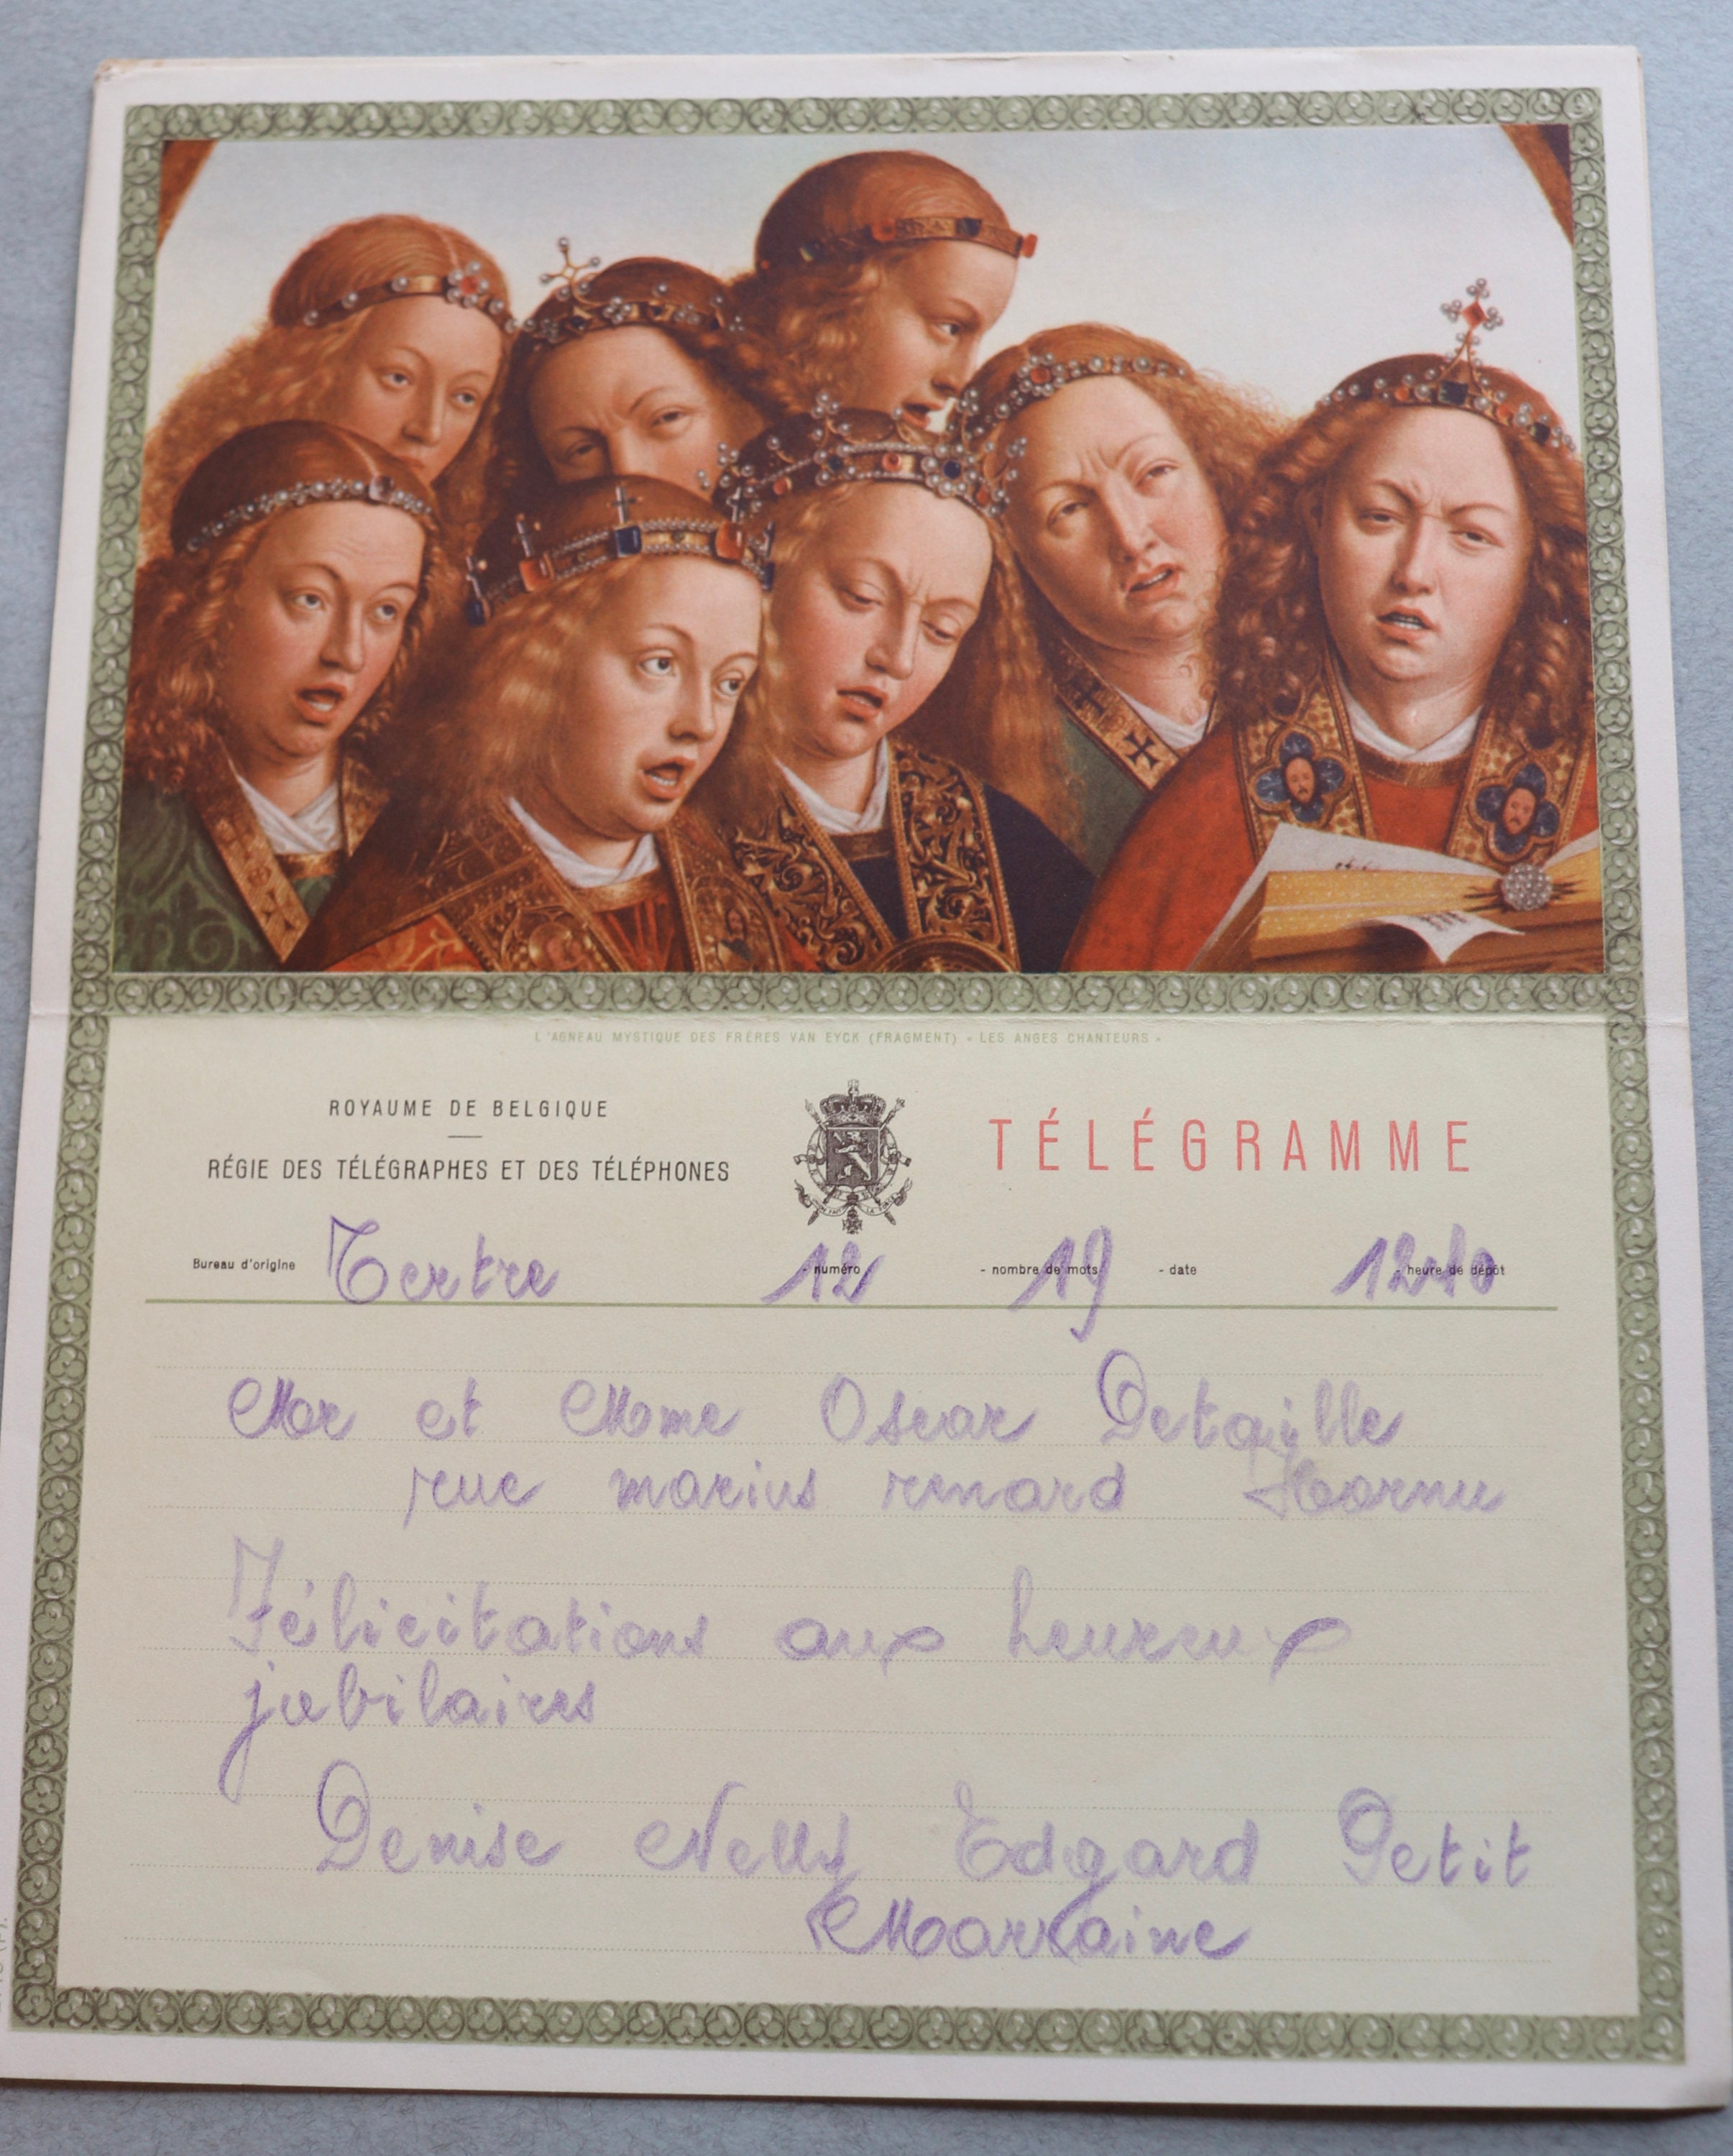 L'AGNEAU MYSTIQUE DES FRÈRES VAN EYCK (FRAGMENT) « LES ANGES CHANTEURS »
ROYAUME DE BELGIQUE
RÉGIE DES TÉLÉGRAPHES ET DES TÉLÉPHONES
TÉLÉGRAMME
Bureau d'origine Tertre 12 numéro - nombre de mots 19 - date 1210 - heure de dépôt
Mor et Mme Oscar Detaille
rue marius renard Hornu
Félicitations aux heureux
jubilaires
Denise Nelly Edgard Petit